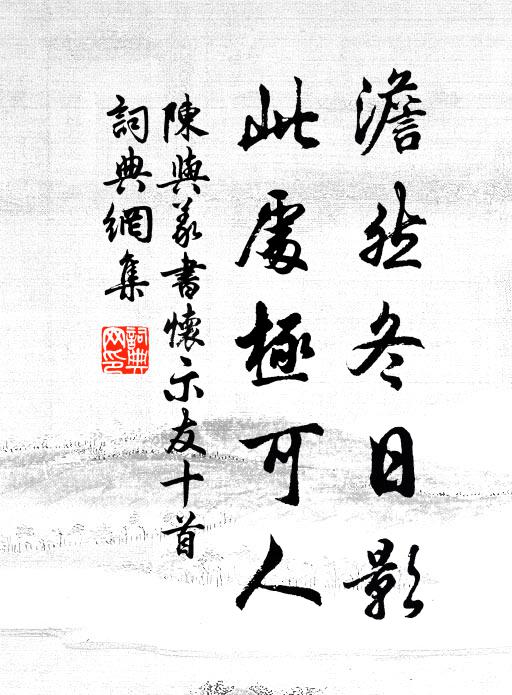 澹然冬日影
此處極可人
陳與義書懷示友十首
詞典網集
詞典網印